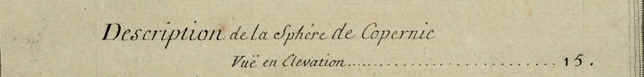 Description de la Sphére de Copernic
Vuë en Elevation............................ 15.